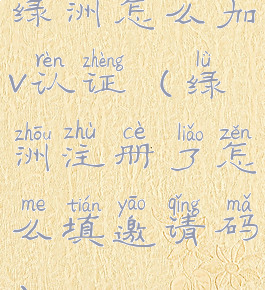 绿洲怎么加
rèn zhèng lǜ
V认证(绿
zhōu zhù cè liǎo zěn
洲注册了怎
me tián yāo qǐng mǎ
么填邀请码